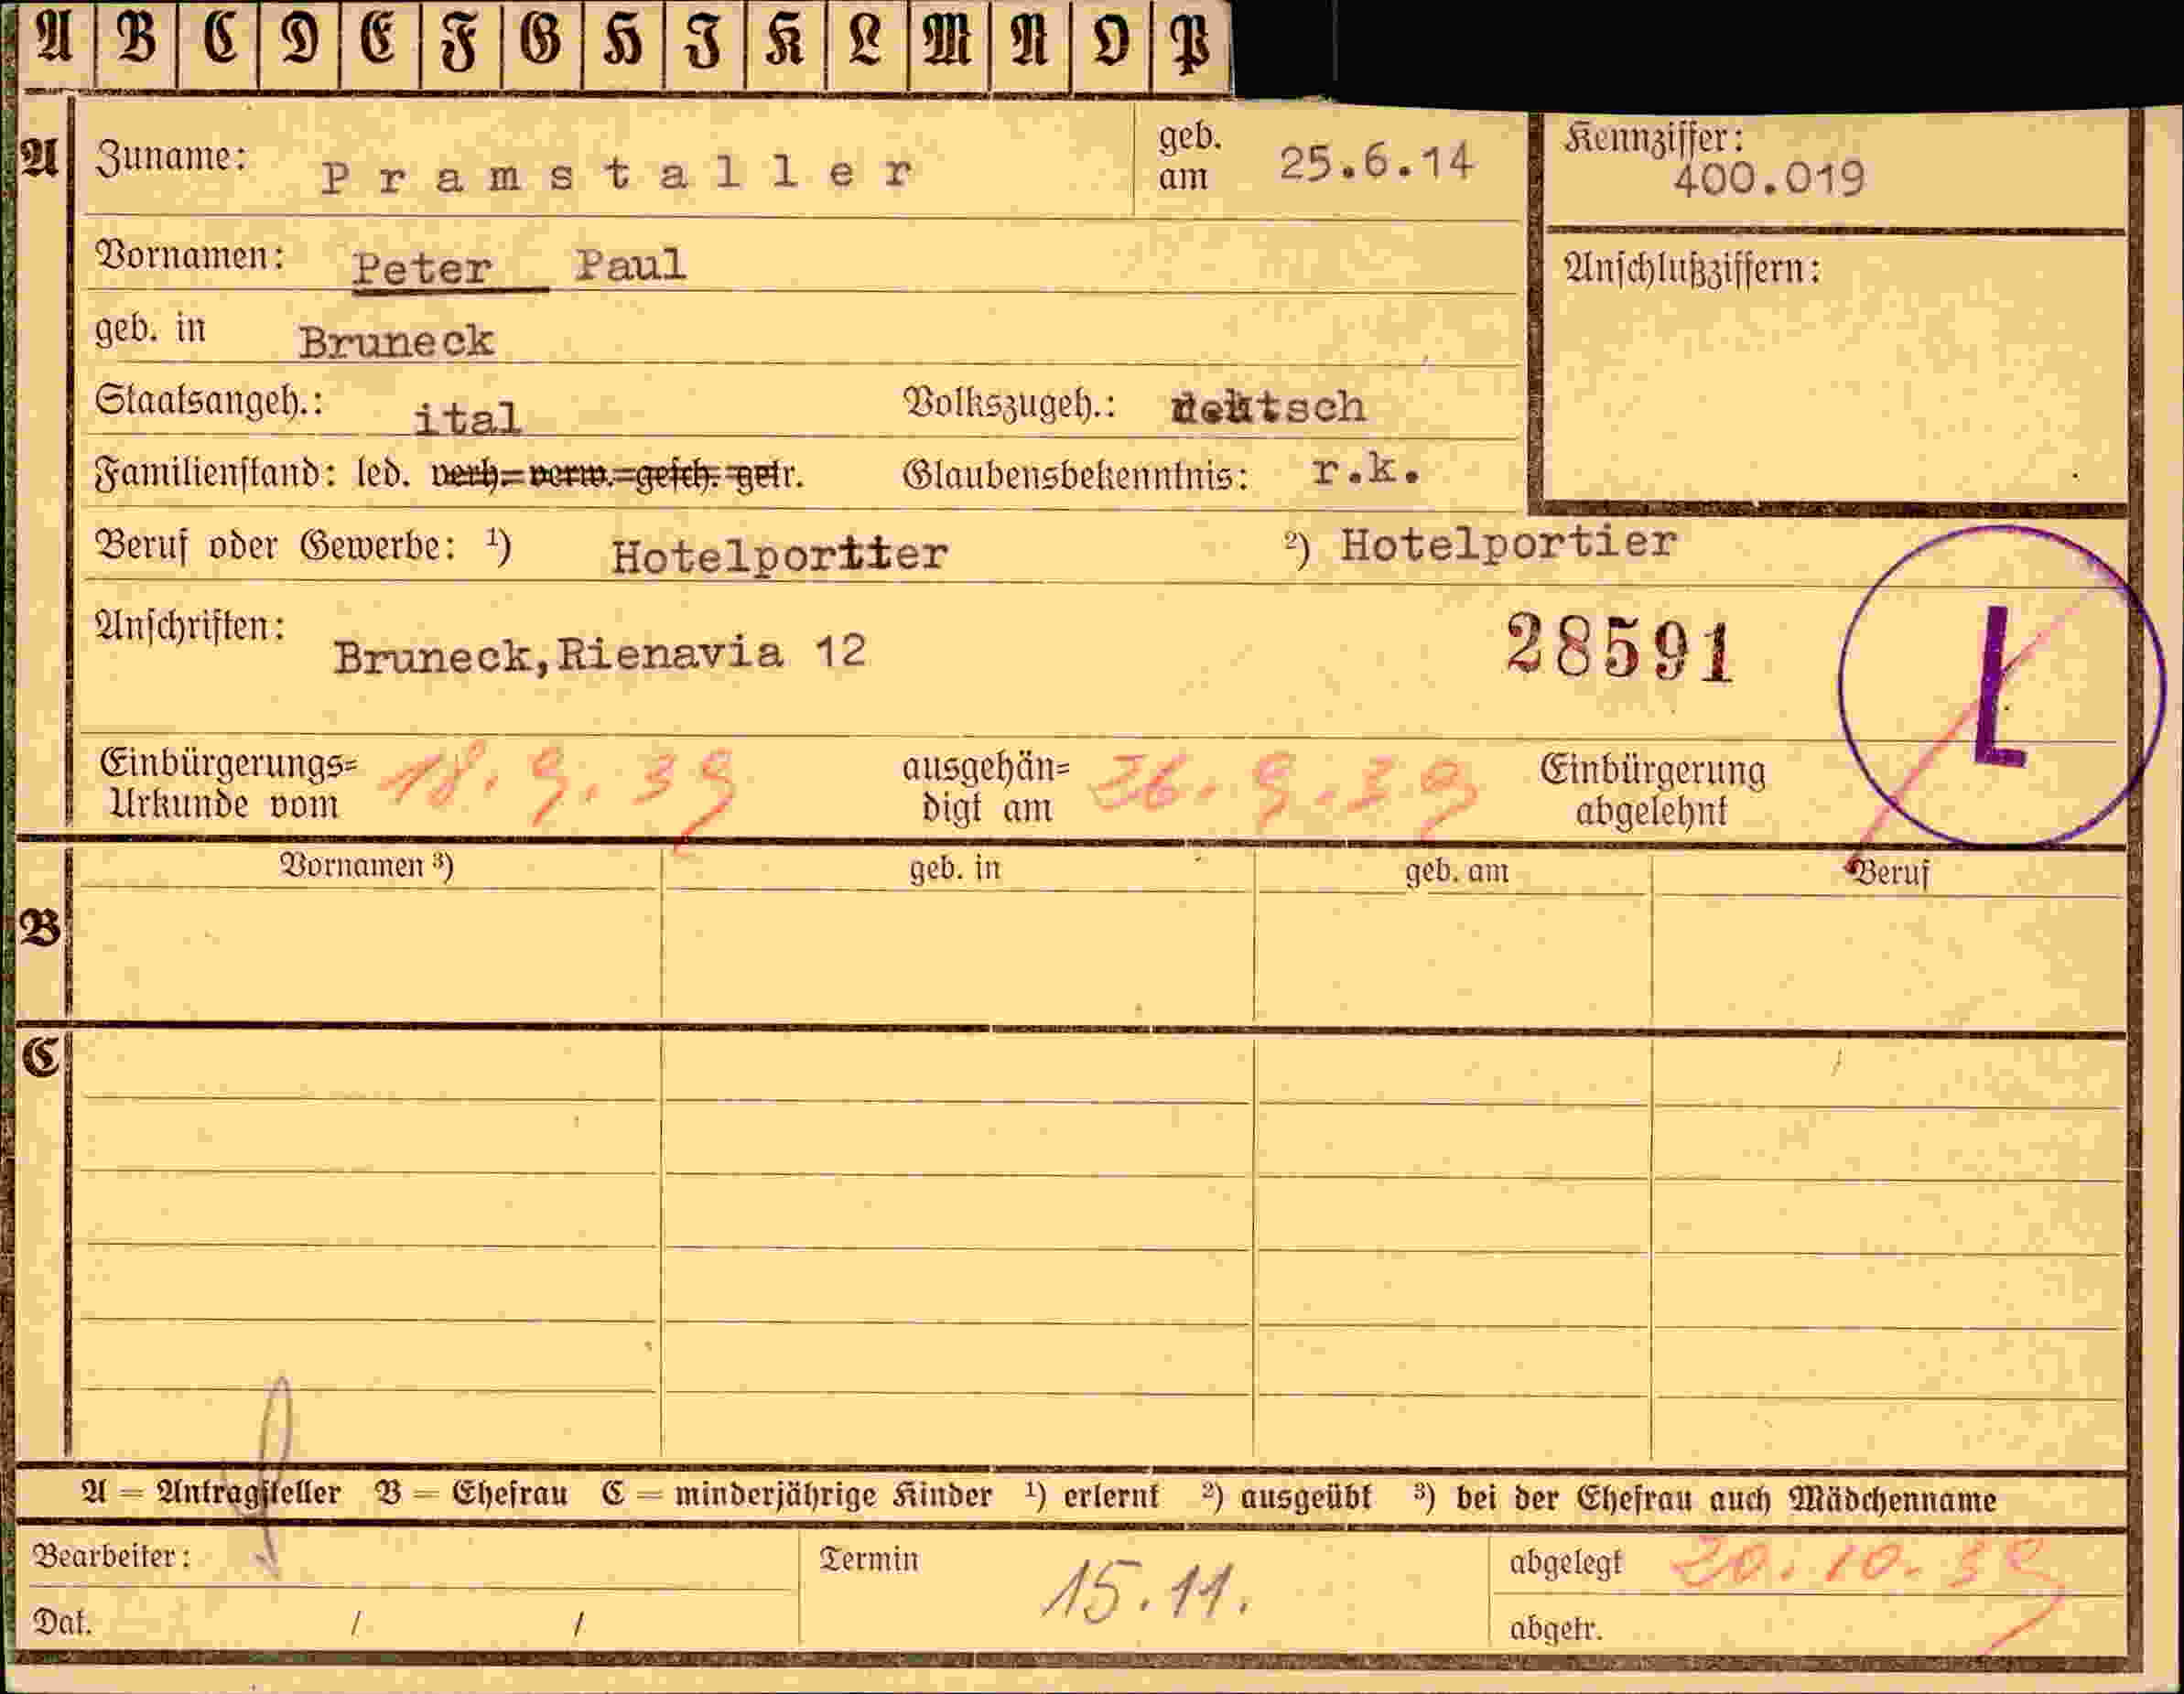 A B C D E F G H I K L M N O P
A Zuname: Pramstaller geb. am 25.6.14 Kennziffer: 400.019
Vornamen: Peter Paul Anschlußziffern:
geb. in Bruneck
Staatsangeh.: ital Volkszugeh.: deutsch
Familienstand: led. verh.=verw.=gesch.=getr. Glaubensbekenntnis: r.k.
Beruf oder Gewerbe: ¹) Hotelportier ²) Hotelportier
Anschriften: Bruneck,Rienavia 12 28591 L
Einbürgerungs=
Urkunde vom 18.9.39 ausgehän=
digt am 26.9.39 Einbürgerung
abgelehnt
Vornamen ³) geb. in geb. am Beruf
B
C
A = Antragsteller B = Ehefrau C = minderjährige Kinder ¹) erlernt ²) ausgeübt ³) bei der Ehefrau auch Mädchenname
Bearbeiter: Termin 15.11. abgelegt 20.10.39
Dat. / / abgetr.